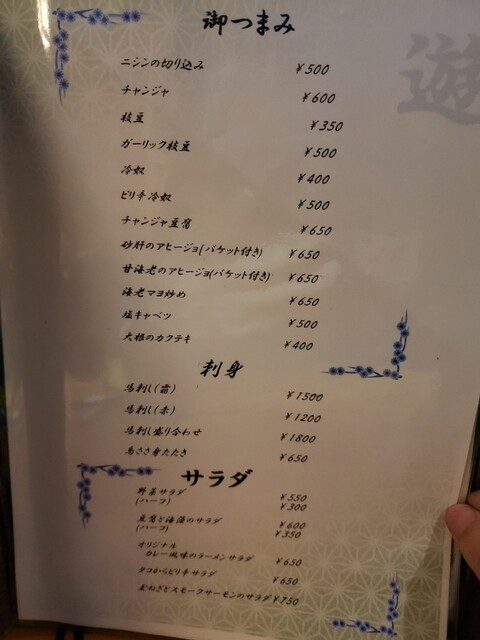 御つまみ
遊
ニシンの切り込み ¥500
チャンジャ ¥600
枝豆 ¥350
ガーリック枝豆 ¥500
冷奴 ¥400
ピリ辛冷奴 ¥500
チャンジャ豆腐 ¥650
砂肝のアヒージョ(バケット付き) ¥650
甘海老のアヒージョ(バケット付き) ¥650
海老マヨ炒め ¥650
塩キャベツ ¥500
大根のカクテキ ¥400
刺身
馬刺し(霜) ¥1500
馬刺し(赤) ¥1200
馬刺し盛り合わせ ¥1800
鳥ささ身たたき ¥650
サラダ
野菜サラダ ¥550
(ハーフ) ¥300
豆腐と海藻のサラダ ¥600
(ハーフ) ¥350
オリジナル
カレー風味のラーメンサラダ ¥650
タコからピリ辛サラダ ¥650
玉ねぎとスモークサーモンのサラダ ¥750